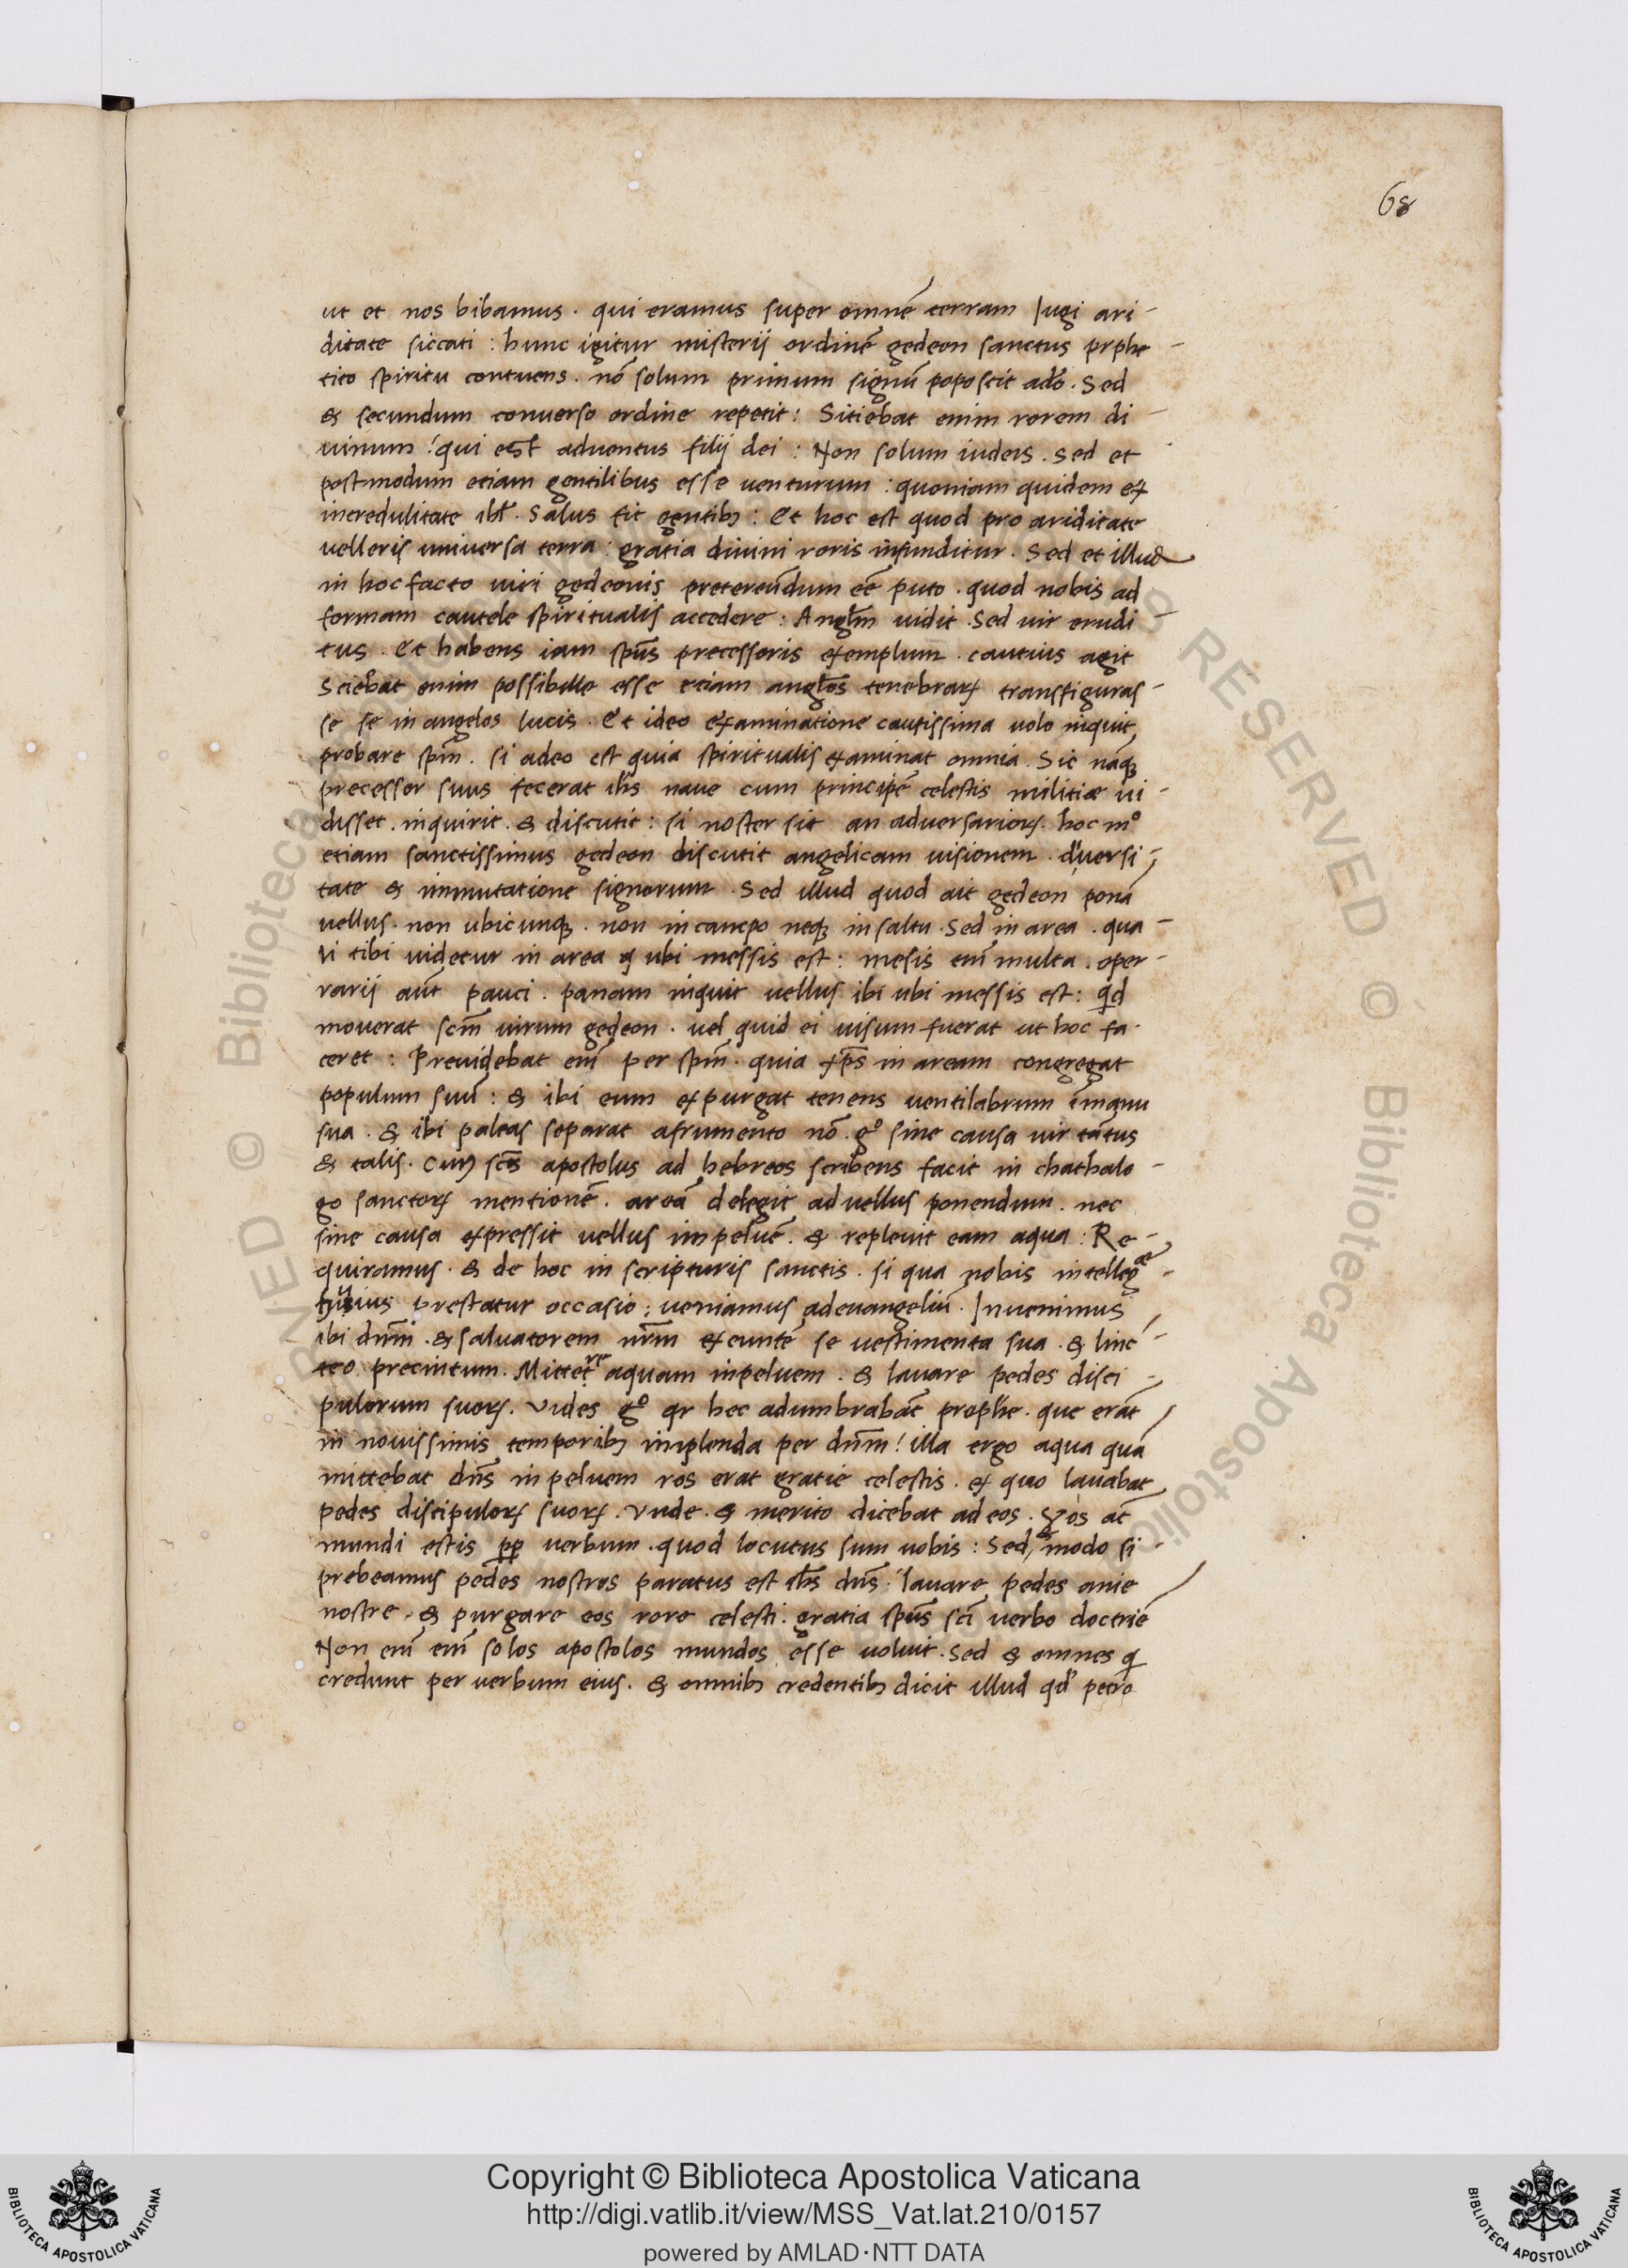 68
ut et nos bibamus . qui eramus super omnē terram Jugi ari-
ditate siccati : hunc igitur misterij ordinē gedeon sanctus prphe-
tico spiritu contuens . nō solum primum signū poposcit adō . Sed
& secundum converso ordine repetit : Sitiebat enim rorem di-
uinum ! qui est adventus filij dei : Non solum iudeis . sed et
postmodum etiam gentilibus esse venturum : quoniam quidem ex
incredulitate ihl . Salus fit gentib; : Et hoc est quod pro ariditate
velleris universa terra : gratia divini roris infunditur . Sed et illud
in hoc facto viri gedeonis pretereūdum eē puto . quod nobis ad
formam cautele spiritualis accedere : Anglm vidit . Sed vir erudi-
tus . Et habens iam spūs precessoris exemplum . cautius agit
Sciebat enim possibille esse etiam anglos tenebraꝝ transfiguras-
se se in angelos lucis . Et ideo examinatione cautissima volo inquit
probare spm̄ . si adeo est quia spiritualis examinat omnia . Sic nāqꝫ
precessor suus fecerat ihs nave cum principē celestis militiæ vi-
disset . inquirit . & discutit : si noster sit an adversarioꝝ . hoc mº
etiam sanctissimus gedeon discutit angelicam visionem . diversi-
tate & immutatione signorum . Sed illud quod ait gedeon ponā
vellus . non ubicunqꝫ . non in campo neqꝫ in saltu . Sed in area . qua-
li tibi videtur in area q ubi messis est : mesis enī multa . oper-
rarij aūt pauci . panam inquit vellus ibi ubi messis est : qd
moverat scm̄ virum gedeon . vel quid ei visum fuerat ut hoc fa-
ceret : Previdebat enī per spm̄ . quia xp̄s in aream congregat
populum suū : & ibi eum expurgat tenens ventilabrum īmanu
sua . & ibi paleas separat afrumento nō . gº sine causa vir tantus
& talis . Cuiꝰ scs̄ apostolus ad hebreos scribens facit in chathalo-
go sanctoꝝ mentionē . areā delegit ad vellus ponendum . nec
sine causa expressit vellus in peluē . & replevit eam aqua : Re-
quiramus . & de hoc in scripturis sanctis . si qua nobis intelleg-
ius prestatur occasio : veniamus adevangeliū . Jnvenimus
ibi dnm̄ . & salvatorem nrm̄ exeuntē se vestimenta sua . & linc-
teo precintum . Mittere aquam inpeluem . & lavare pedes disci-
pulorum suoꝝ . Vides gº qr hec adumbrabāt prophe . que erāt
in novissimis temporib; implenda per dnm̄ ! illa ergo aqua quā
mittebat dns̄ in peluem ros erat gratie celestis . ex quo lavabat
pedes discipuloꝝ suoꝝ . Unde . & merito dicebat ad eos . Vos at̄
mundi estis pp verbum . quod locutus sum vobis : Sed & modo si-
prebeamus pedes nostros paratus est ihs dns̄ . lavare pedes anie
nostre . & purgare eos rore celesti . gratia spūs scī verbo doctriē
Non enī enī solos apostolos mundos esse voluit . Sed & omnes q
credunt per verbum eius . & omnib; credentib; dicit illud qd petro
Copyright © Biblioteca Apostolica Vaticana
http://digi.vatlib.it/view/MSS_Vat.lat.210/0157
powered by AMLAD·NTT DATA
BIBLIOTECA APOSTOLICA VATICANA
BIBLIOTECA APOSTOLICA VATICANA